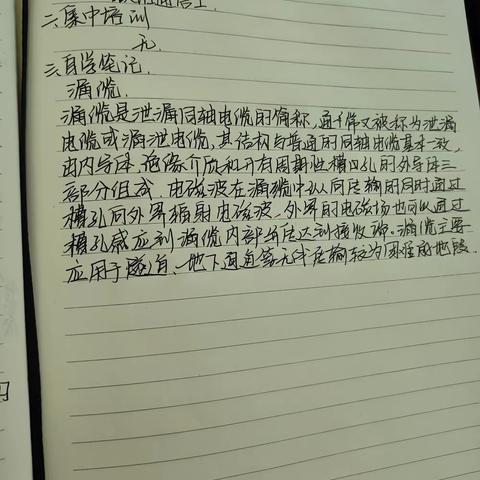 二、集中培训
无.
三、自学笔记.
漏缆.
漏缆是泄漏同轴电缆的简称,通常又被称为泄漏
电缆或漏泄电缆,其结构与普通的同轴电缆基本一致,
由内导体,绝缘介质和开有周期性槽口孔的外导体三
部分组成.电磁波在漏缆中纵向传输的同时通过
槽孔向外界辐射电磁波,外界的电磁场也可以通过
槽孔感应到漏缆内部并传达到接收端.漏缆主要
应用于隧道、地下通道等无线传输较为困难的地段.